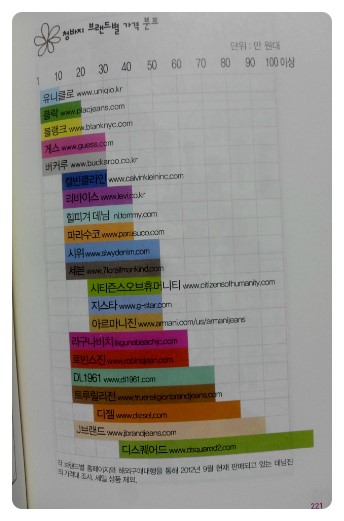 청바지 브랜드별 가격 분포
단위 : 만 원대
1 10 20 30 40 50 60 70 80 90 100 이상
유니클로 www.uniqlo.kr
플락 www.placjeans.com
블랭크 www.blanknyc.com
게스 www.guess.com
버커루 www.buckaroo.co.kr
캘빈클라인 www.calvinkleininc.com
리바이스 www.levi.co.kr
힐피거 데님 nl.tommy.com
파라수코 www.parasuco.com
시위 www.siwydenim.com
세븐 www.7forallmankind.com
시티즌스오브휴머니티 www.citizensofhumanity.com
지스타 www.g-star.com
아르마니진 www.armani.com/us/armanijeans
라구나비치 lagunabeachjc.com
로빈스진 www.robinsjean.com
DL1961 www.dl1961.com
트루릴리전 www.truereligionbrandjeans.com
디젤 www.diesel.com
J브랜드 www.jbrandjeans.com
디스퀘어드 www.dsquared2.com
각 브랜드별 홈페이지와 해외구매대행을 통해 2012년 9월 현재 판매되고 있는 데님진
의 가격대 조사. 세일 상품 제외.
221